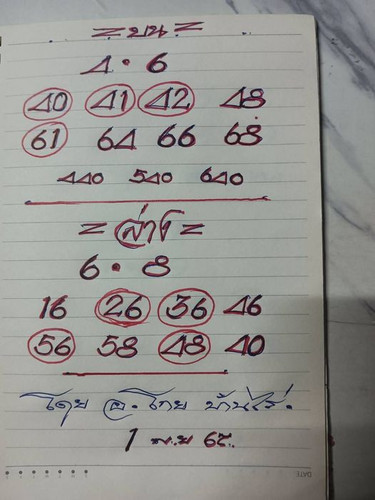 = บน =
4 • 6
40 41 42 48
61 64 66 68
440 540 640
= ล่าง =
6 • 8
16 26 36 46
56 58 48 40
โดย อ. ไทย บ้านไร่.
1 พ.ย 68.
DATE